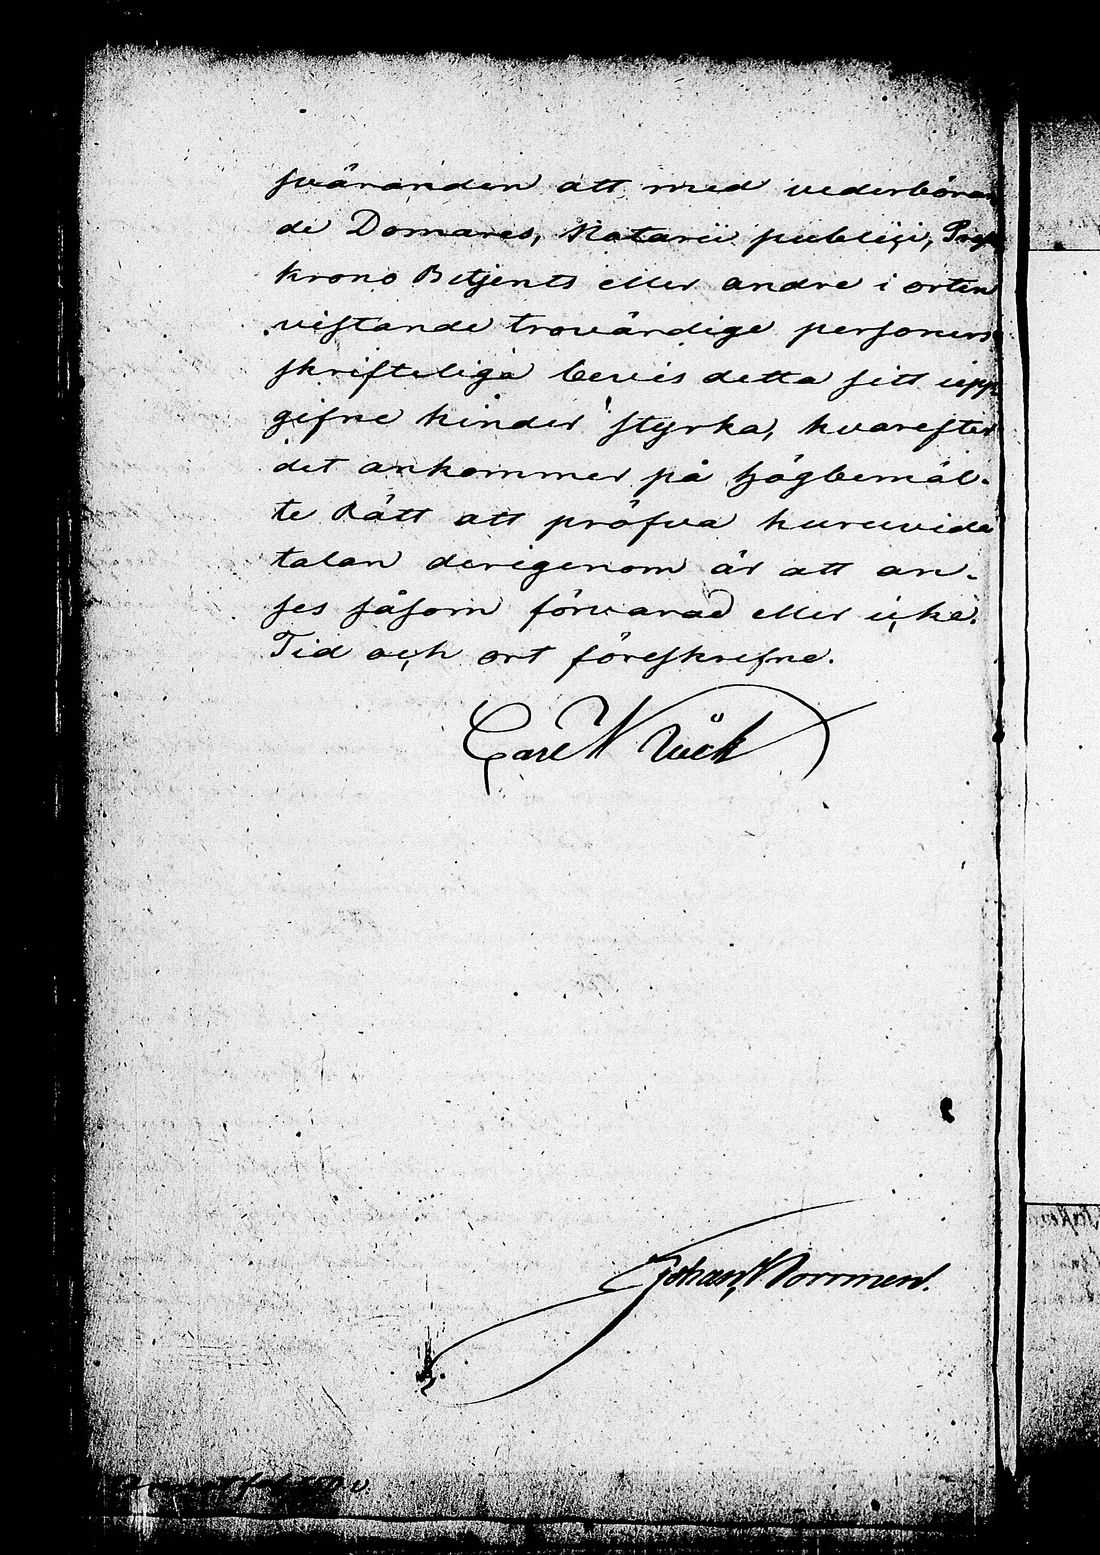 sväranden att med vederböran
de Domares, Notarii publici,
krono Betjents eller andre i orten
vistande trovärdige personers
skrifteliga bevis detta sitt upp
gifne hinder styrka, hvarefter
det ankommer på högbemäl-
te Rätt att pröfva huruvida
talan derigenom är att an-
ses såsom förvarad eller icke.
Tid och ort föreskrifne.
Carl W Öök
Johan